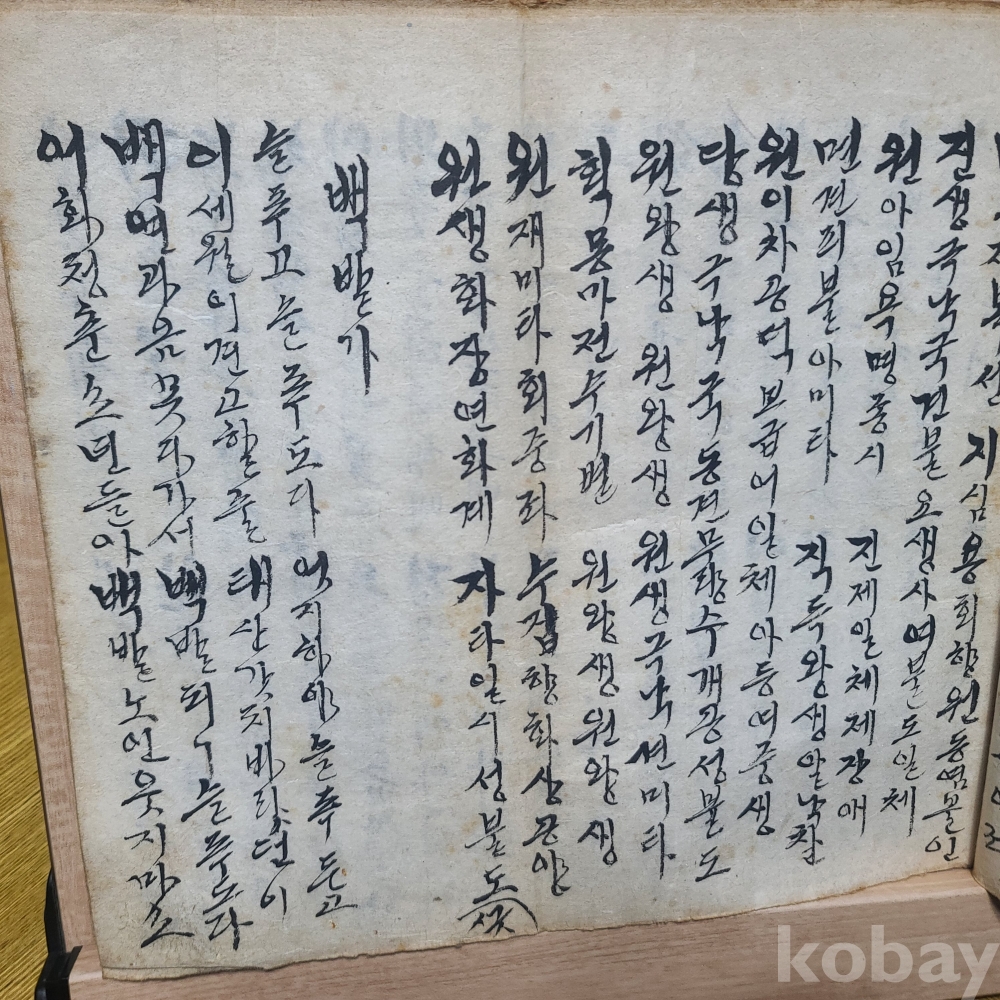 지심용회향원동염불인
진생극낙국견불요생사여불도일체
원아임욕명종시 진제일체제장애
면견피불아미타 직득왕생알낙찰
원이차공덕보급어일체아등여중생
당생극낙국동견무량수개공성불도
원왕생 원왕생 원생극낙견미타
획몽마정수기별 원왕생원왕생
원재미타회중좌 수집향화상공양
원생화장연화계 자타일시성불도
백발가
슬푸고 슬푸도다 엇지하야 슬푸든고
이세월이 견고할줄 태산갓치 바라던이
백연과음 못다가서 백발되니 슬푸도다
어화청춘 소년들아 백발노인 웃지마소
kobay